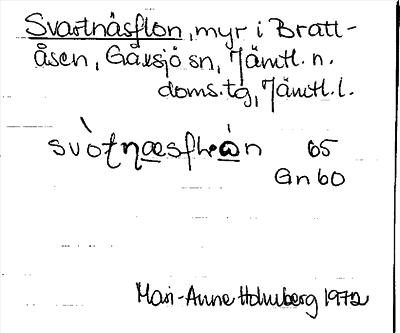 Svartnäsflon, myr i Bratt-
åsen, Gåxsjö sn, Jämtl. n.
doms.tg, Jämtl. l.
65
Gn 60
Mari-Anne Holmberg 1972